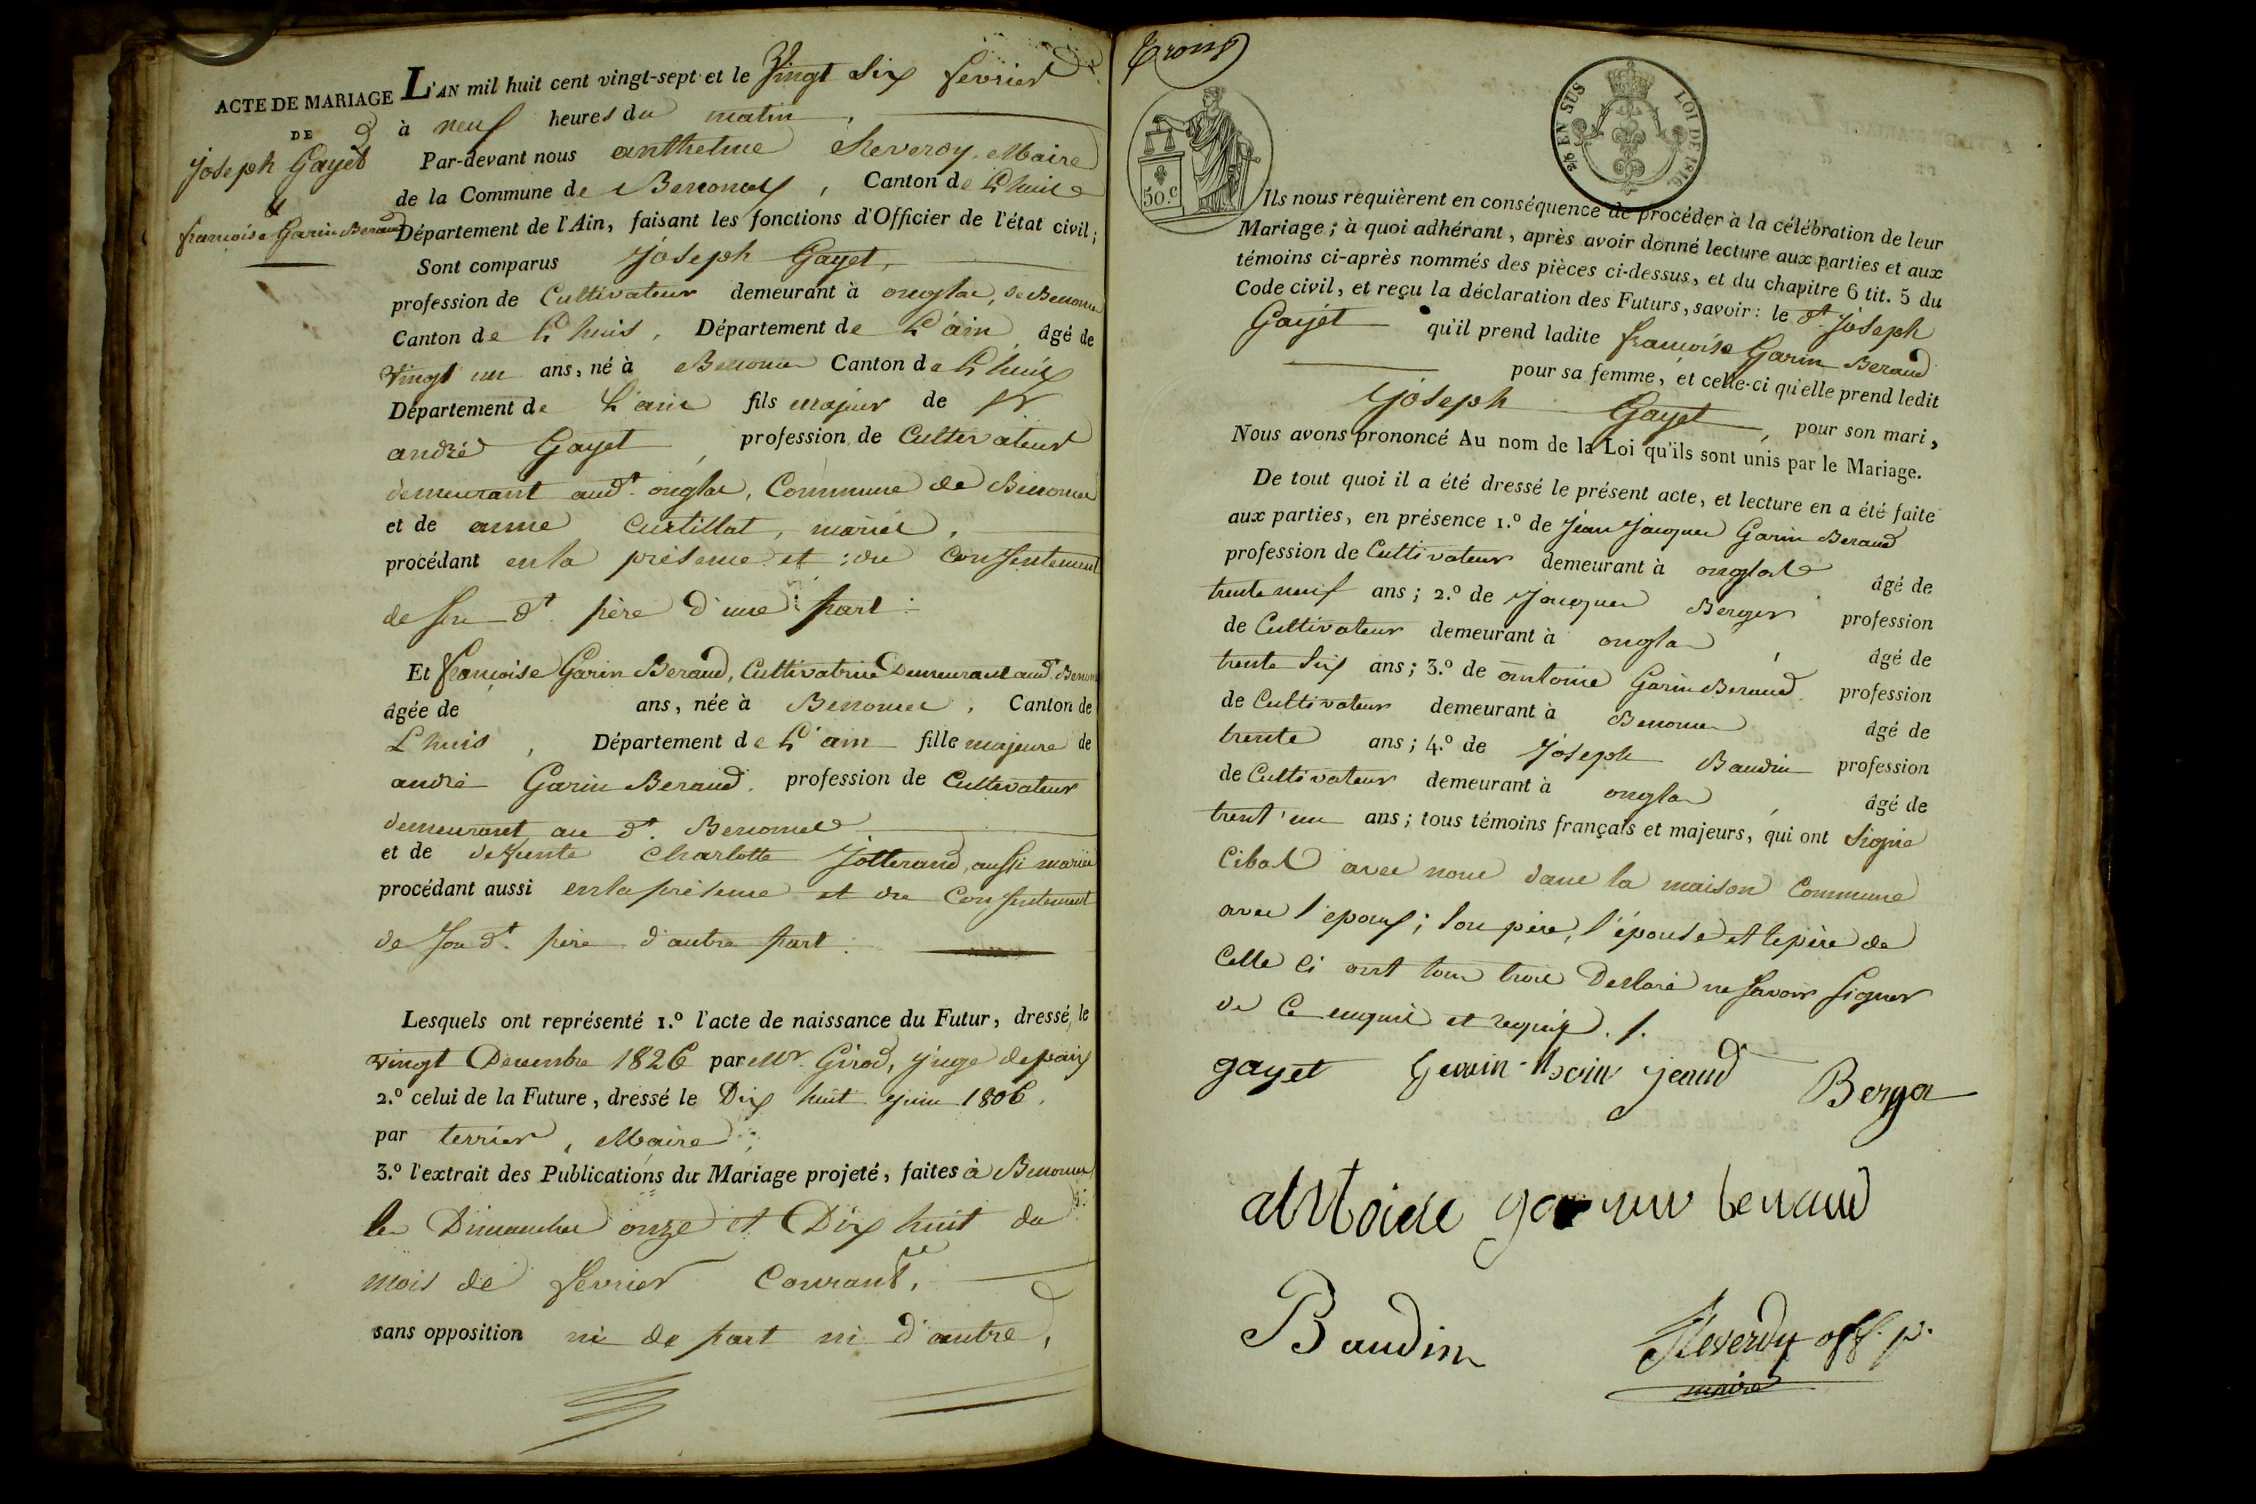 ACTE DE MARIAGE
DE
joseph Gayet
&
françoise Garin Beraud
L'AN mil huit cent vingt-sept et le Vingt Six fevrier
à neuf heures du matin,
Par-devant nous anthelme Reverdy, Maire
de la Commune de Benonces, Canton de L'huis
Département de l'Ain, faisant les fonctions d'Officier de l'état civil;
Sont comparus Joseph Gayet,
profession de Cultivateur demeurant à onglas, de Benonce
Canton de L'huis, Département de L'ain, âgé de
Vingt un ans, né à Benonce Canton de L'huis
Département de L'ain fils majeur de Sr
andré Gayet, profession de Cultivateur
demeurant aud.t onglas, Commune de Benonce
et de anne Curtillat, mariés,
procédant en la présence et du Consentement
de son d.t père d'une part.
Et françoise Garin Beraud, Cultivatrice Demeurant aud. Benon
âgée de ans, née à Benonces, Canton de
L'huis, Département de L'ain fille majeure de
andré Garin Beraud, profession de Cultivateur
demeurant au d.t Benonce
et de defunte Charlotte Jotterand, aussi mariée
procédant aussi en la présence et du Consentement
de Son d.t père d'autre part.
Lesquels ont représenté 1.º l'acte de naissance du Futur, dressé, le
vingt Décembre 1826 par Mr. Girod, juge de paix
2.º celui de la Future, dressé le Dix huit juin 1806,
par terrier, Maire;
3.º l'extrait des Publications du Mariage projeté, faites à Benonce
les Dimanches onze et Dix huit du
mois de fevrier Courant,
sans opposition ni de part ni d'autre,
2/5 EN SUS LOI DE 1816.
50.c
Ils nous requièrent en conséquence de procéder à la célébration de leur
Mariage; à quoi adhérant, après avoir donné lecture aux parties et aux
témoins ci-après nommés des pièces ci-dessus, et du chapitre 6 tit. 5 du
Code civil, et reçu la déclaration des Futurs, savoir: le d.t joseph
Gayet qu'il prend ladite françoise Garin Beraud
pour sa femme, et celle-ci qu'elle prend ledit
joseph Gayet, pour son mari,
Nous avons prononcé Au nom de la Loi qu'ils sont unis par le Mariage.
De tout quoi il a été dressé le présent acte, et lecture en a été faite
aux parties, en présence 1.º de Jean Jacques Garin Beraud
profession de Cultivateur demeurant à onglas âgé de
trente neuf ans; 2.º de Jacques Berger profession
de Cultivateur demeurant à onglas, âgé de
trente six ans; 3.º de antoine Garin Beraud profession
de Cultivateur demeurant à Benonce âgé de
trente ans; 4.º de Joseph Baudin profession
de Cultivateur demeurant à onglas, âgé de
trent'un ans; tous témoins français et majeurs, qui ont Signé
Cibas avec nous dans la maison Commune
avec l'epoux; son père, l'épouse et le père de
Celle ci ont tous trois Déclaré ne Savoir Signer
de Ce enquis et requis./.
gayet
Berger
antoine garin beraud
Baudin
Reverdy off. p.
maire